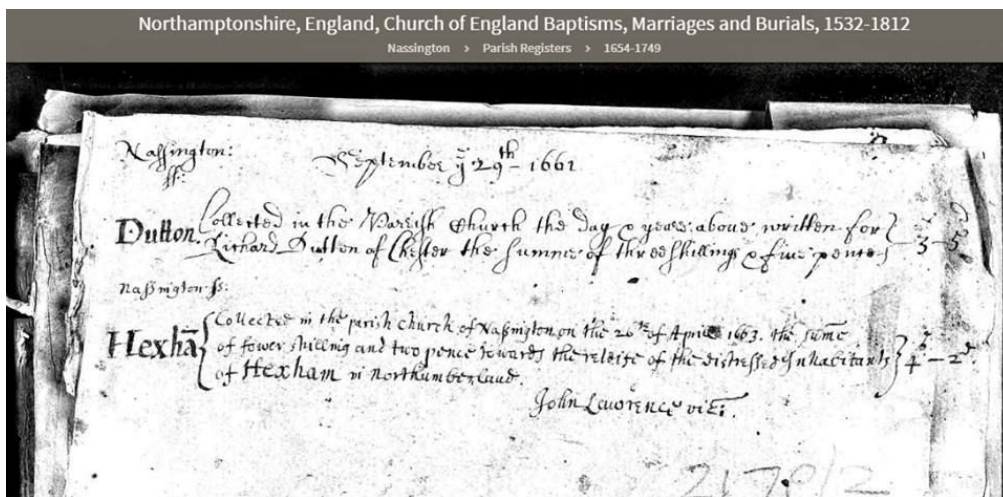 Northamptonshire, England, Church of England Baptisms, Marriages and Burials, 1532-1812
Nassington > Parish Registers > 1654-1749
Naſsington:
September ye 29th - 1661
ſs:
Dutton. Collected in the Parish Church the day & yeare above written for
Richard Dutton of Chester the summe of three shillings & five pence 3s - 5d
Naſsington ſs:
Hexhā Collected in the parish church of Naſsington on the 26th of Aprill 1663. the sume
of fower shilling and two pence towards the releife of the distressed Inhabitants 4s - 2d.
of Hexham in Northumberland.
John Lawrence vic: